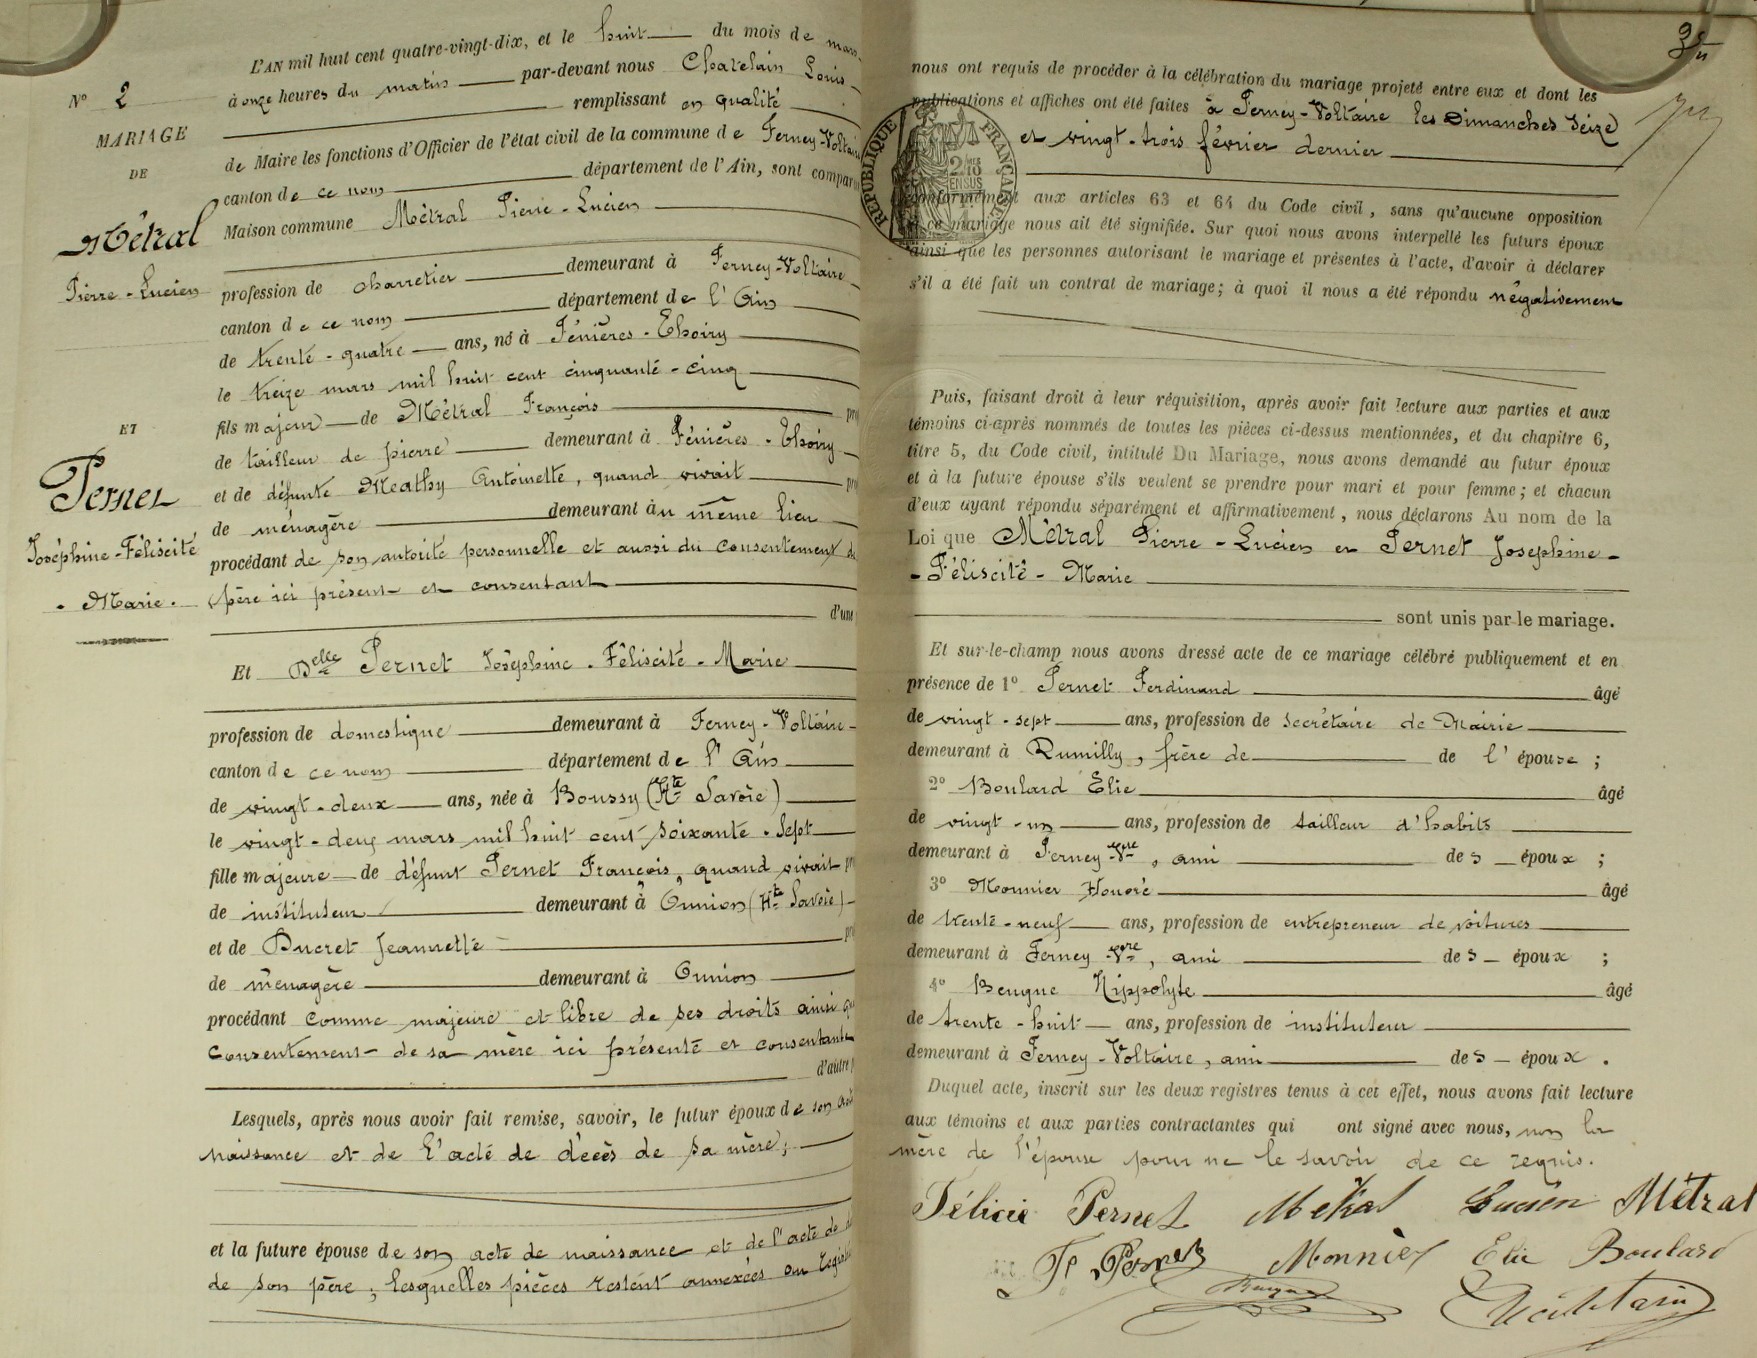 N° 2
MARIAGE
DE
Métral
Pierre-Lucien
ET
Pernet
Joséphine-Féliscité
- Marie -
L'AN mil huit cent quatre-vingt-dix, et le huit du mois de mars
à onze heures du matin par-devant nous Chatelain Louis
remplissant en qualité
de Maire les fonctions d'Officier de l'état civil de la commune de Ferney-Voltaire
canton de ce nom département de l'Ain, sont comparu
Maison commune Métral Pierre-Lucien
profession de charretier demeurant à Ferney-Voltaire
canton de ce nom département de l'Ain
de trente-quatre ans, né à Fénières-Thoiry
le treize mars mil huit cent cinquante-cinq
fils majeur de Métral François pro
de tailleur de pierre demeurant à Fénières-Thoiry
et de défunte Meathy Antoinette, quand vivait pro
de ménagère demeurant au même lieu
procédant de son autorité personnelle et aussi du consentement du
père ici présent et consentant
d'une
Et Delle Pernet Joséphine-Féliscité-Marie
profession de domestique demeurant à Ferney-Voltaire
canton de ce nom département de l'Ain
de vingt-deux ans, née à Boussy (Hte Savoie)
le vingt-deux mars mil huit cent soixante-sept
fille majeure de défunt Pernet François, quand vivait pr
de instituteur demeurant à Onnion (Hte Savoie)
et de Ducret Jeannette pro
de ménagère demeurant à Onnion
procédant comme majeure et libre de ses droits ainsi que
consentement de sa mère ici présente et consentante
d'autre
Lesquels, après nous avoir fait remise, savoir, le futur époux de son acte
naissance et de l'acte de décès de sa mère;
et la future épouse de son acte de naissance et de l'acte de
de son père; lesquelles pièces restent annexées au registre
3
nous ont requis de procéder à la célébration du mariage projeté entre eux et dont les
publications et affiches ont été faites à Ferney-Voltaire les Dimanches seize
et vingt-trois février dernier
RÉPUBLIQUE FRANÇAISE
2/10 EN SUS
conformément aux articles 63 et 64 du Code civil, sans qu'aucune opposition
à ce mariage nous ait été signifiée. Sur quoi nous avons interpellé les futurs époux
ainsi que les personnes autorisant le mariage et présentes à l'acte, d'avoir à déclarer
s'il a été fait un contrat de mariage; à quoi il nous a été répondu négativement
Puis, faisant droit à leur réquisition, après avoir fait lecture aux parties et aux
témoins ci-après nommés de toutes les pièces ci-dessus mentionnées, et du chapitre 6,
titre 5, du Code civil, intitulé Du Mariage, nous avons demandé au futur époux
et à la future épouse s'ils veulent se prendre pour mari et pour femme; et chacun
d'eux ayant répondu séparément et affirmativement, nous déclarons Au nom de la
Loi que Métral Pierre-Lucien et Pernet Josephine-
-Féliscité-Marie
sont unis par le mariage.
Et sur-le-champ nous avons dressé acte de ce mariage célébré publiquement et en
présence de 1° Pernet Ferdinand âgé
de vingt-sept ans, profession de secrétaire de Mairie
demeurant à Rumilly, frère de de l'épouse ;
2° Boulard Elie âgé
de vingt-un ans, profession de tailleur d'habits
demeurant à Ferney-Vre, ami des époux ;
3° Monnier Honoré âgé
de trente-neuf ans, profession de entrepreneur de voitures
demeurant à Ferney Vre, ami des époux ;
4° Bengue Hippolyte âgé
de trente-huit ans, profession de instituteur
demeurant à Ferney-Voltaire, ami des époux .
Duquel acte, inscrit sur les deux registres tenus à cet effet, nous avons fait lecture
aux témoins et aux parties contractantes qui ont signé avec nous, non la
mère de l'épouse pour ne le savoir de ce requis.
Félicie Pernet Métral Lucien Métral
F. Pernet Monnier Elie Boulard